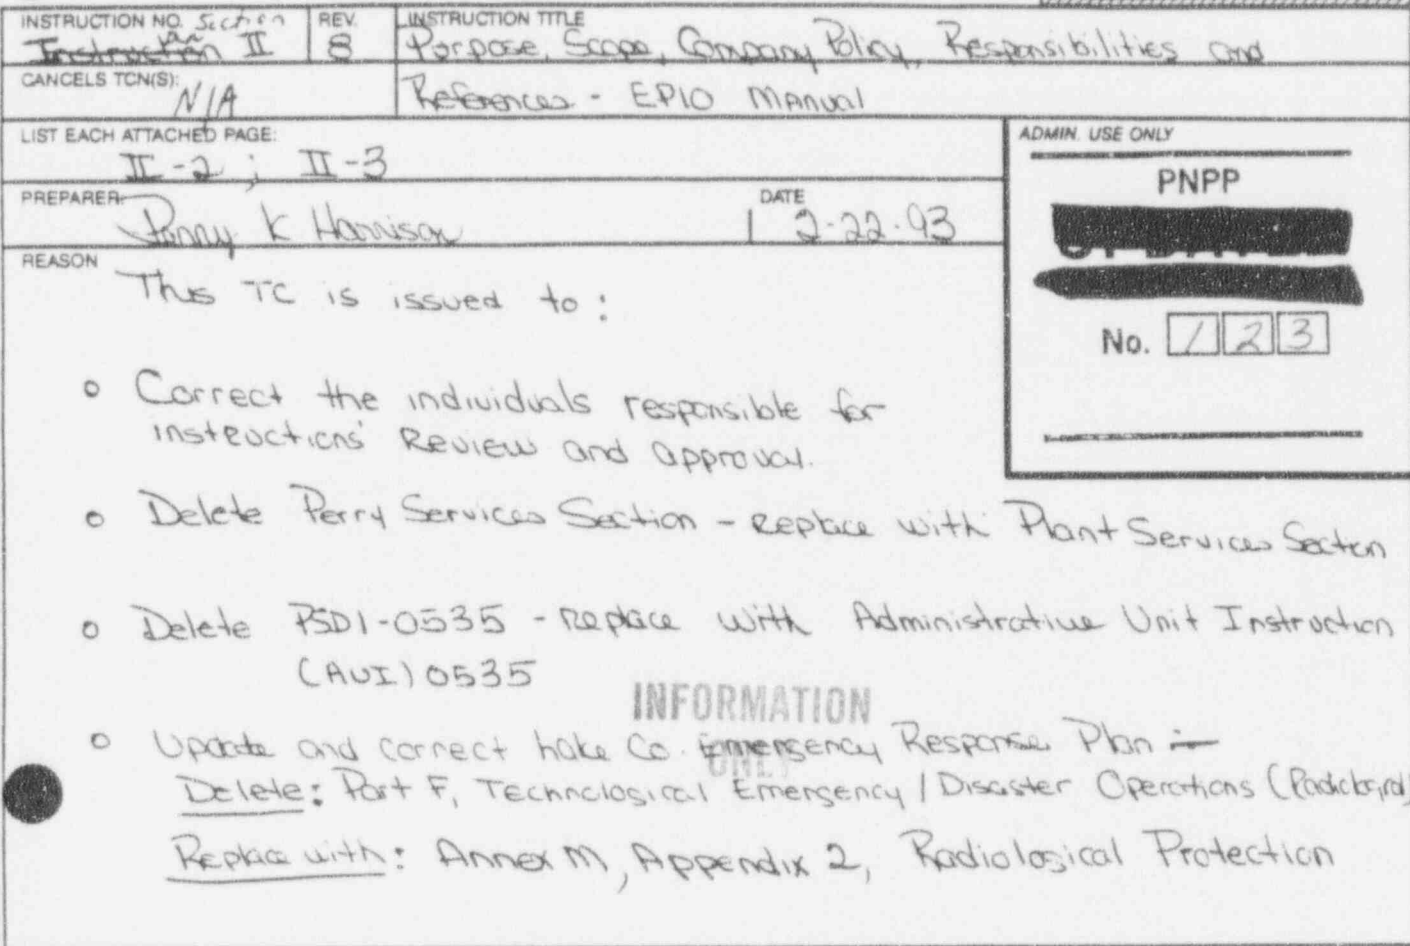 INSTRUCTION NO. Section
Instruction II
REV.
8
INSTRUCTION TITLE
Purpose, Scope, Company Policy, Responsibilities and
References - EPIO Manual
CANCELS TCN(S):
N/A
LIST EACH ATTACHED PAGE:
II-2 ; II-3
PREPARER:
Penny K Harrison
DATE
2-22-93
ADMIN. USE ONLY
PNPP
No. 1 2 3
REASON
This TC is issued to :
o Correct the individuals responsible for
instructions' Review and approval.
o Delete Perry Services Section - Replace with Plant Services Section
o Delete PSDI-0535 - Replace with Administrative Unit Instruction
(AUI) 0535
INFORMATION
ONLY
o Update and correct Lake Co. Emergency Response Plan :-
Delete: Part F, Technological Emergency / Disaster Operations (Radiological)
Replace with: Annex M, Appendix 2, Radiological Protection